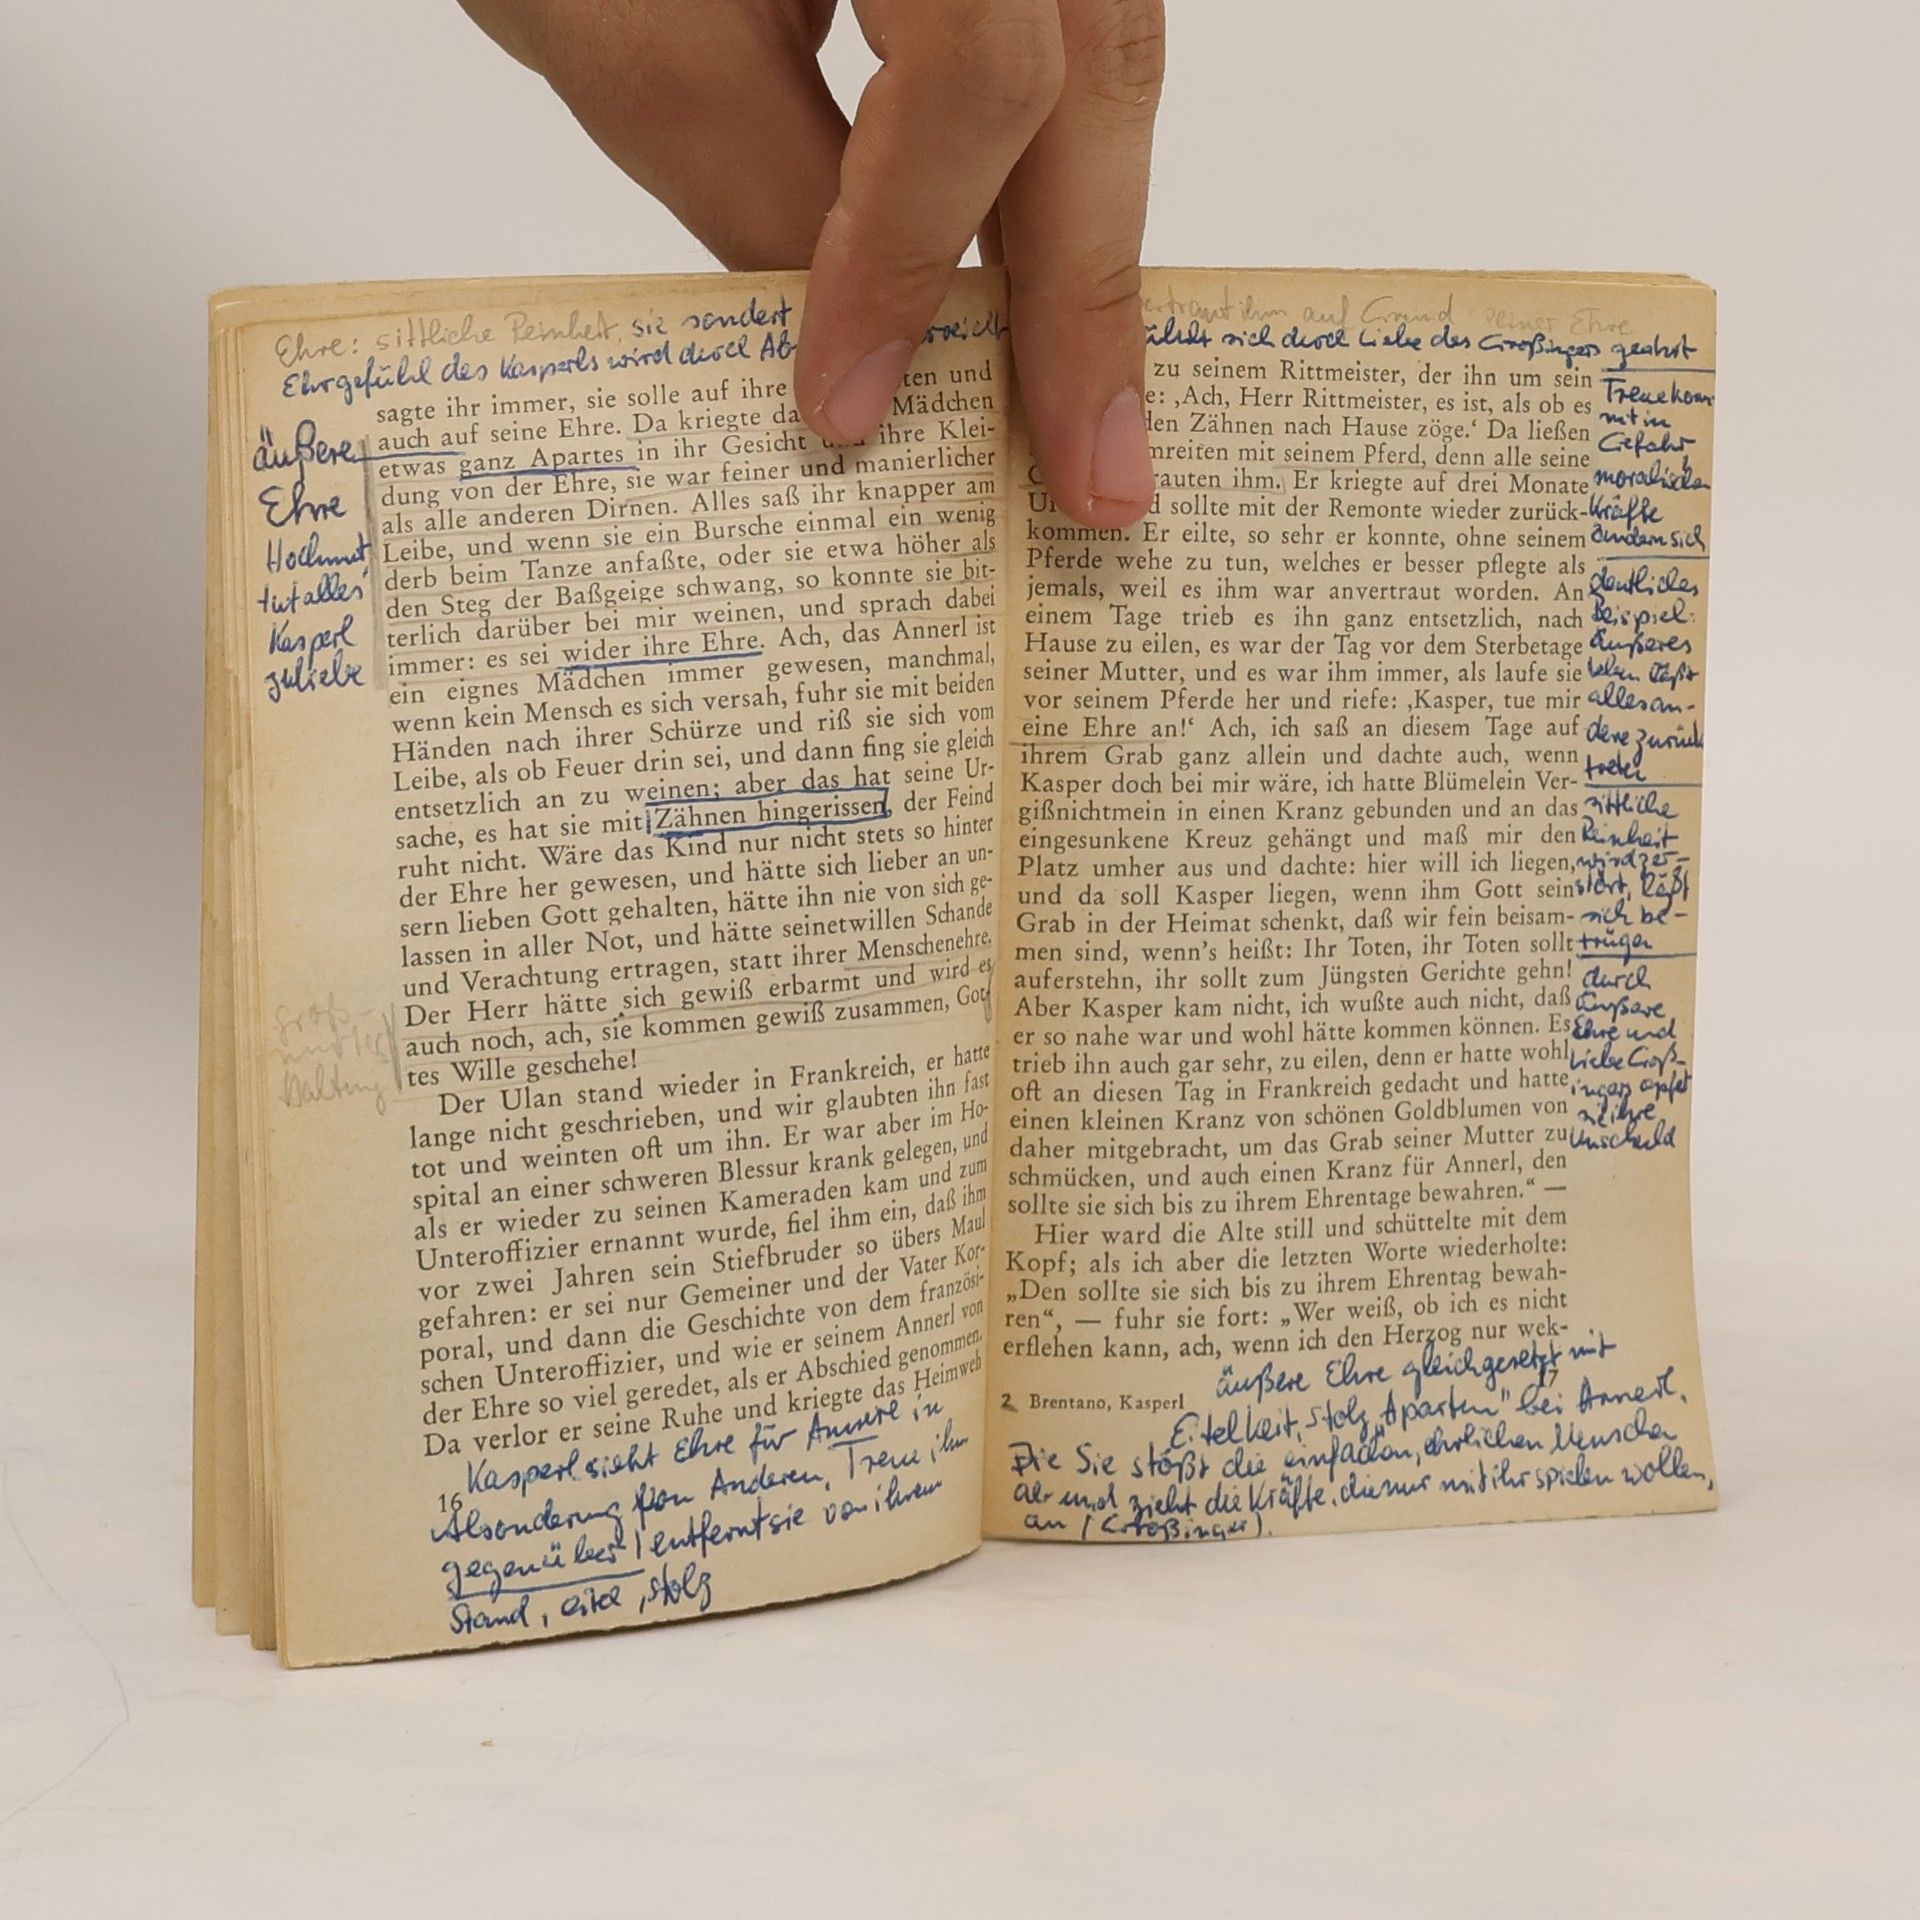 Ehre: sittliche Reinheit, sie sondert
Ehrgefühl des Kasperls wird durch
sagte ihr immer, sie solle auf ihre ten und
auch auf seine Ehre. Da kriegte da Mädchen
etwas ganz Apartes in ihr Gesicht und ihre Klei-
dung von der Ehre, sie war feiner und manierlicher
als alle anderen Dirnen. Alles saß ihr knapper am
Leibe, und wenn sie ein Bursche einmal ein wenig
derb beim Tanze anfaßte, oder sie etwa höher als
den Steg der Baßgeige schwang, so konnte sie bit-
terlich darüber bei mir weinen, und sprach dabei
immer: es sei wider ihre Ehre. Ach, das Annerl ist
ein eignes Mädchen immer gewesen, manchmal,
wenn kein Mensch es sich versah, fuhr sie mit beiden
Händen nach ihrer Schürze und riß sie sich vom
Leibe, als ob Feuer drin sei, und dann fing sie gleich
entsetzlich an zu weinen; aber das hat seine Ur-
sache, es hat sie mit Zähnen hingerissen, der Feind
ruht nicht. Wäre das Kind nur nicht stets so hinter
der Ehre her gewesen, und hätte sich lieber an un-
sern lieben Gott gehalten, hätte ihn nie von sich ge-
lassen in aller Not, und hätte seinetwillen Schande
und Verachtung ertragen, statt ihrer Menschenehre.
Der Herr hätte sich gewiß erbarmt und wird es
auch noch, ach, sie kommen gewiß zusammen, Got-
tes Wille geschehe!
Der Ulan stand wieder in Frankreich, er hatte
lange nicht geschrieben, und wir glaubten ihn fast
tot und weinten oft um ihn. Er war aber im Ho-
spital an einer schweren Blessur krank gelegen, und
als er wieder zu seinen Kameraden kam und zum
Unteroffizier ernannt wurde, fiel ihm ein, daß ihm
vor zwei Jahren sein Stiefbruder so übers Maul
gefahren: er sei nur Gemeiner und der Vater Kor-
poral, und dann die Geschichte von dem französi-
schen Unteroffizier, und wie er seinem Annerl von
der Ehre so viel geredet, als er Abschied genommen.
Da verlor er seine Ruhe und kriegte das Heimweh
äußere
Ehre
Hochmut
tut alles
Kasperl
zuliebe
Groß-
mutter
Haltung
Kasperl sieht Ehre für Annerl in
16
Absonderung von Anderen, Treue ihm
gegenüber / entfernt sie von ihrem
Stand, eitel, stolz
vertraut ihm auf Grund seiner Ehre
sich durch Liebe des Großingers geehrt
zu seinem Rittmeister, der ihn um sein
e: ‚Ach, Herr Rittmeister, es ist, als ob es
den Zähnen nach Hause zöge.‘ Da ließen
mreiten mit seinem Pferd, denn alle seine
rauten ihm. Er kriegte auf drei Monate
Ur d sollte mit der Remonte wieder zurück-
kommen. Er eilte, so sehr er konnte, ohne seinem
Pferde wehe zu tun, welches er besser pflegte als
jemals, weil es ihm war anvertraut worden. An
einem Tage trieb es ihn ganz entsetzlich, nach
Hause zu eilen, es war der Tag vor dem Sterbetage
seiner Mutter, und es war ihm immer, als laufe sie
vor seinem Pferde her und riefe: ‚Kasper, tue mir
eine Ehre an!‘ Ach, ich saß an diesem Tage auf
ihrem Grab ganz allein und dachte auch, wenn
Kasper doch bei mir wäre, ich hatte Blümelein Ver-
gißnichtmein in einen Kranz gebunden und an das
eingesunkene Kreuz gehängt und maß mir den
Platz umher aus und dachte: hier will ich liegen,
und da soll Kasper liegen, wenn ihm Gott sein
Grab in der Heimat schenkt, daß wir fein beisam-
men sind, wenn's heißt: Ihr Toten, ihr Toten sollt
auferstehn, ihr sollt zum Jüngsten Gerichte gehn!
Aber Kasper kam nicht, ich wußte auch nicht, daß
er so nahe war und wohl hätte kommen können. Es
trieb ihn auch gar sehr, zu eilen, denn er hatte wohl
oft an diesen Tag in Frankreich gedacht und hatte
einen kleinen Kranz von schönen Goldblumen von
daher mitgebracht, um das Grab seiner Mutter zu
schmücken, und auch einen Kranz für Annerl, den
sollte sie sich bis zu ihrem Ehrentage bewahren.“ —
Hier ward die Alte still und schüttelte mit dem
Kopf; als ich aber die letzten Worte wiederholte:
„Den sollte sie sich bis zu ihrem Ehrentag bewah-
ren“, — fuhr sie fort: „Wer weiß, ob ich es nicht
erflehen kann, ach, wenn ich den Herzog nur wek-
Treue kom
mt in
Gefahr,
moralischen
Kräfte
ändern sich
deutliches
Beispiel:
äußeres
Leben läßt
alles an-
dere zurück
treten
sittliche
Reinheit
wird zer-
stört, läßt
sich be-
trügen
durch
äußere
Ehre und
Liebe Groß-
ingers opfert
sie ihre
Unschuld
äußere Ehre gleichgesetzt mit
2 Brentano, Kasperl
17
Eitelkeit, Stolz, „Aparten“ bei Annerl.
Sie stößt die einfachen, ehrlichen Menschen
ab und zieht die Kräfte, die nur mit ihr spielen wollen,
an (Großinger).